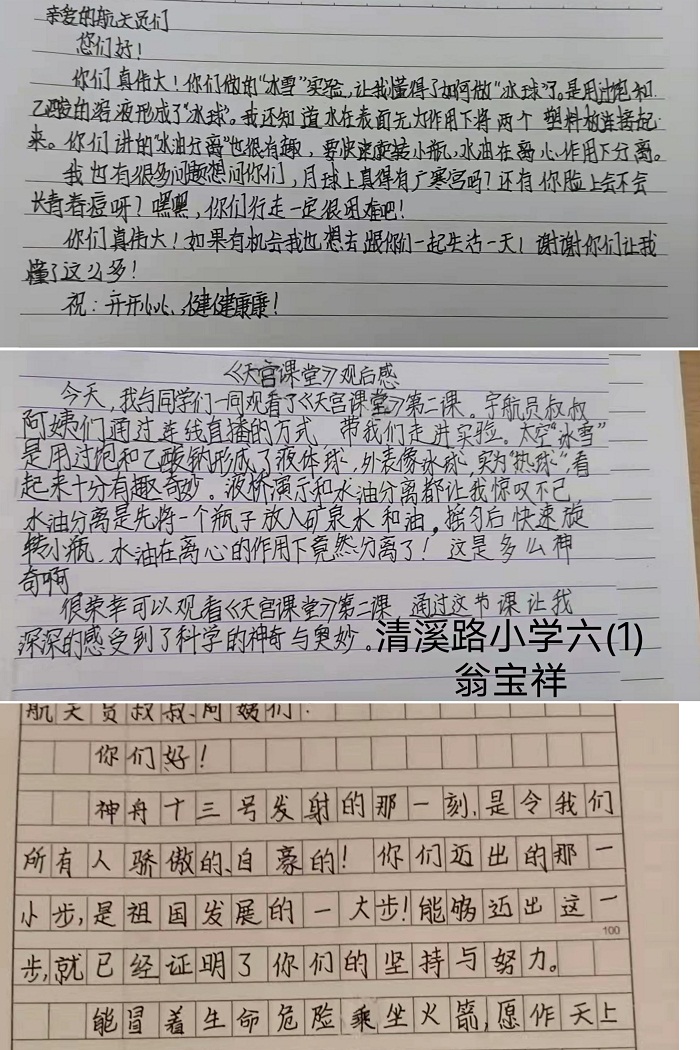 亲爱的航天员们
您们好！
你们真伟大！你们做的“冰雪”实验，让我懂得了如何做“冰球”了。是用过饱和
乙酸的溶液形成了“冰球”。我还知道水在表面无大作用下将两个塑料板连接起
来。你们讲的“水油分离”也很有趣，要快速旋转小瓶，水油在离心作用下分离。
我也有很多问题想问你们，月球上真得有广寒宫吗？还有你脸上会不会
长青春痘呀？嘿嘿，你们行走一定很困难吧！
你们真伟大！如果有机会我也想去跟你们一起生活一天！谢谢你们让我
懂了这么多！
祝：开开心心、健健康康！
《天宫课堂》观后感
今天，我与同学们一同观看了《天宫课堂》第二课。宇航员叔叔
阿姨们通过连线直播的方式，带我们走进实验。太空“冰雪”
是用过饱和乙酸钠形成了液体球，外表像冰球，实为“热球”，看
起来十分有趣奇妙。液桥演示和水油分离都让我惊叹不已，
水油分离是先将一个瓶子放入矿泉水和油，摇匀后快速旋
转小瓶，水油在离心的作用下竟然分离了！这是多么神
奇啊
很荣幸可以观看《天宫课堂》第二课，通过这节课让我
深深的感受到了科学的神奇与奥妙。
清溪路小学六(1)
翁宝祥
航天员叔叔、阿姨们：
你们好！
神舟十三号发射的那一刻，是令我们
所有人骄傲的、自豪的！你们迈出的那一
小步，是祖国发展的一大步！能够迈出这一
100
步，就已经证明了你们的坚持与努力。
能冒着生命危险乘坐火箭，愿作天上